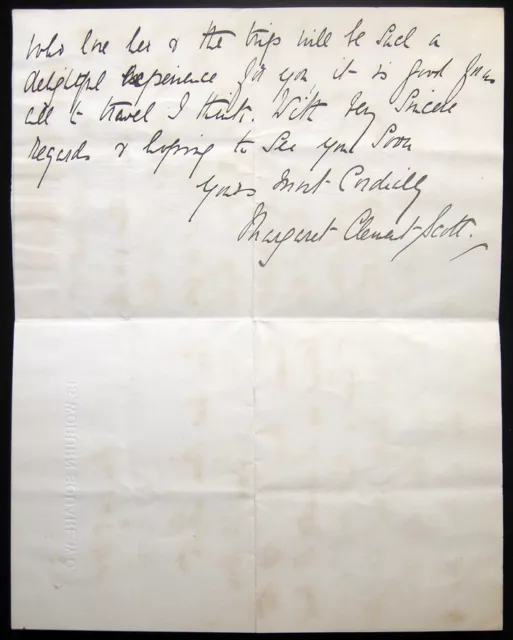 who love her & the trip will be such a
delightful experience for you, it is good for us
all to travel I think. With very Sincere
Regards & hoping to see you Soon
Yours Most Cordially
Margaret Clement-Scott.
15 WOBURN SQUARE. W.C.